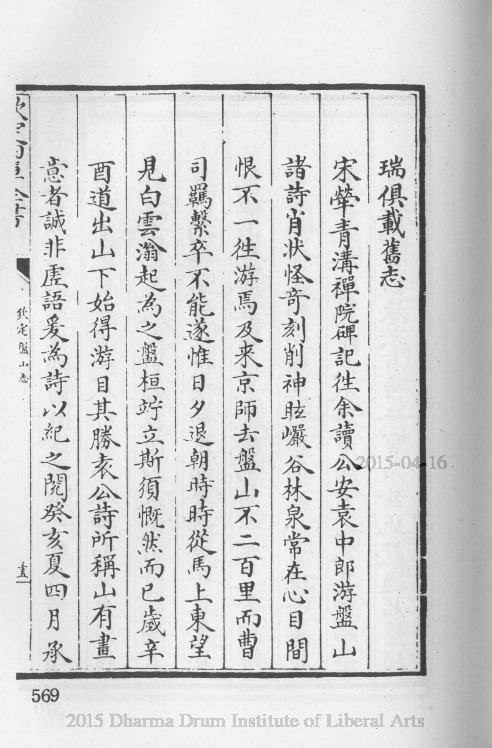 瑞俱載舊志
宋犖青溝禪院碑記徃余讀公安袁中郎游盤山
諸詩肖狀怪竒刻削神眩巖谷林泉常在心目間
恨不一徃游焉及来京師去盤山不二百里而曹
司羈繫卒不能遂惟日夕退朝時時從馬上東望
見白雲滃起為之盤桓竚立斯須慨然而已歲辛
酉道出山下始得游目其勝袁公詩所稱山有畫
意者誠非虛語爰為詩以紀之閱癸亥夏四月承
欽定四庫全書
欽定盤山志
569
2015-04-16
2015 Dharma Drum Institute of Liberal Arts